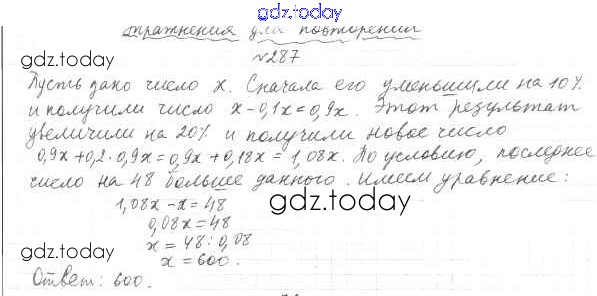 gdz.today
Упражнения для повторения
gdz.today
№287
Пусть дано число x. Сначала его уменьшили на 10%
и получили число x-0,1x=0,9x. Этот результат
gdz.today
увеличили на 20% и получили новое число
0,9x+0,2·0,9x=0,9x+0,18x=1,08x. По условию, последнее
число на 48 больше данного. Имеем уравнение:
gdz.today
1,08x-x=48
gdz.today
0,08x=48
x=48:0,08
gdz.today
x=600.
Ответ: 600.